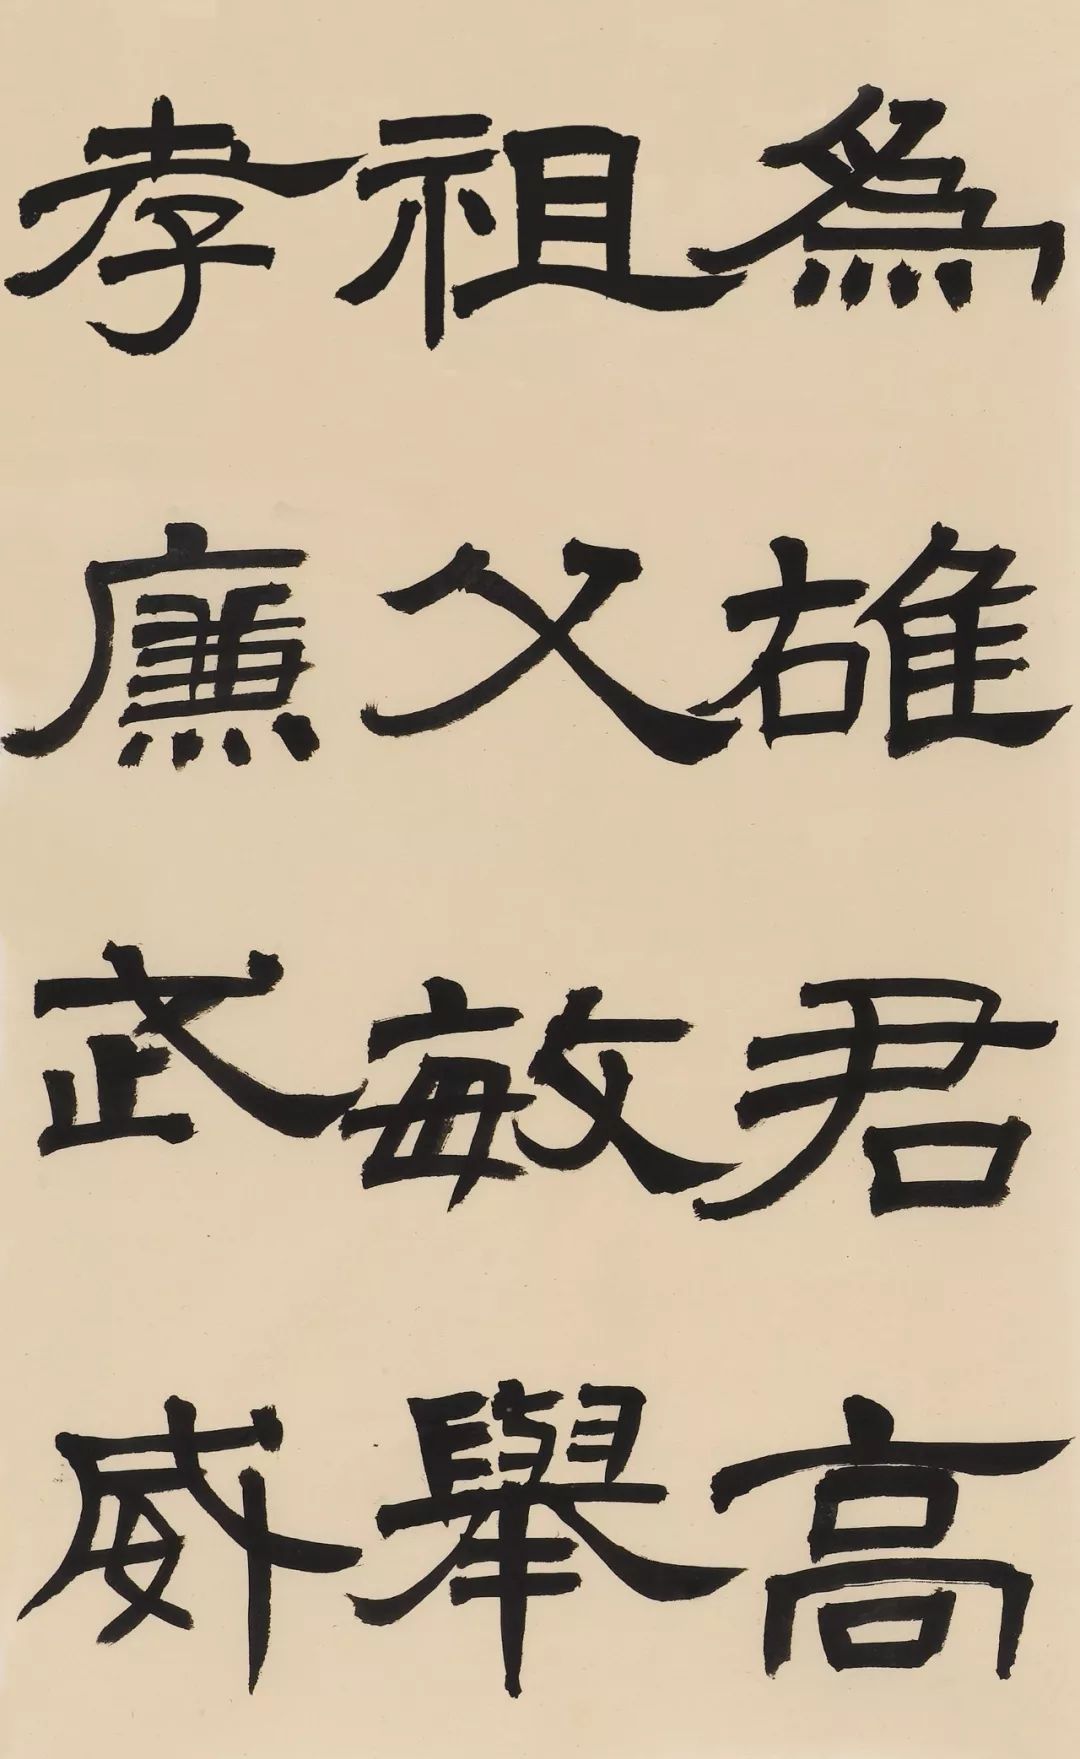 為雄君高
祖父敏舉
孝廉武威